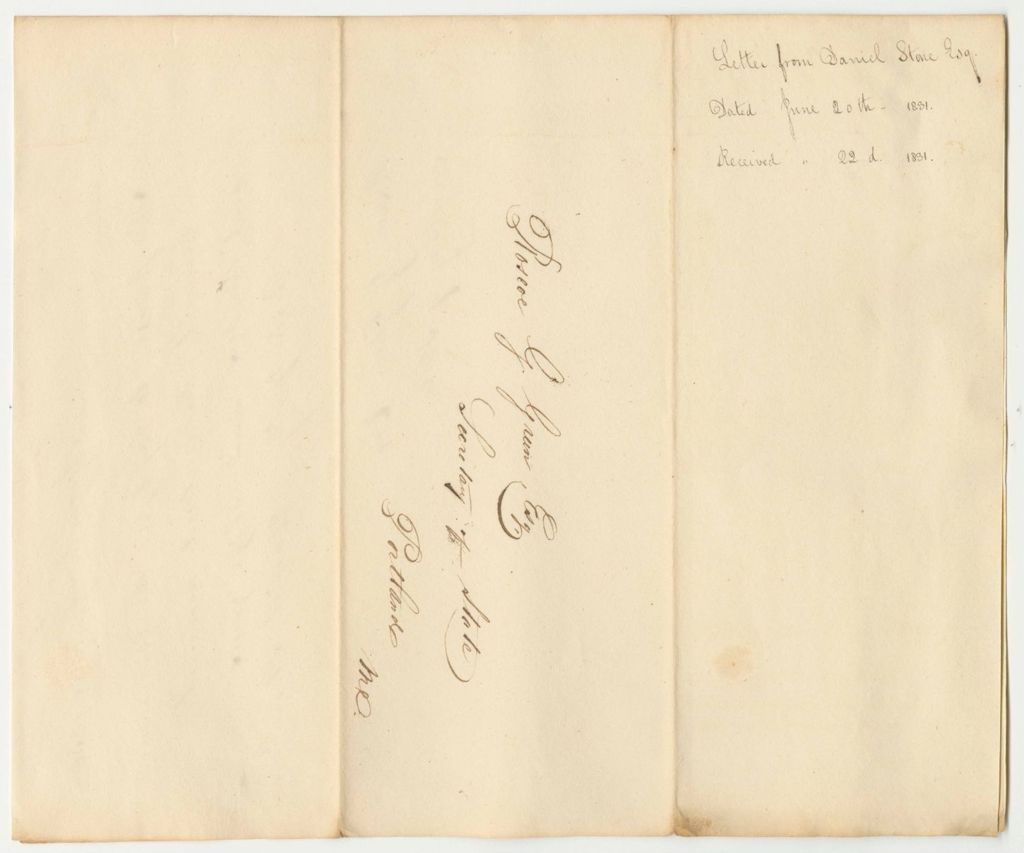 Letter from Daniel Stone Esq.
Dated June 20th - 1831.
Received " 22d. 1831.
Roscoe G. Green Esq
Secretary of State
Portland
Me.